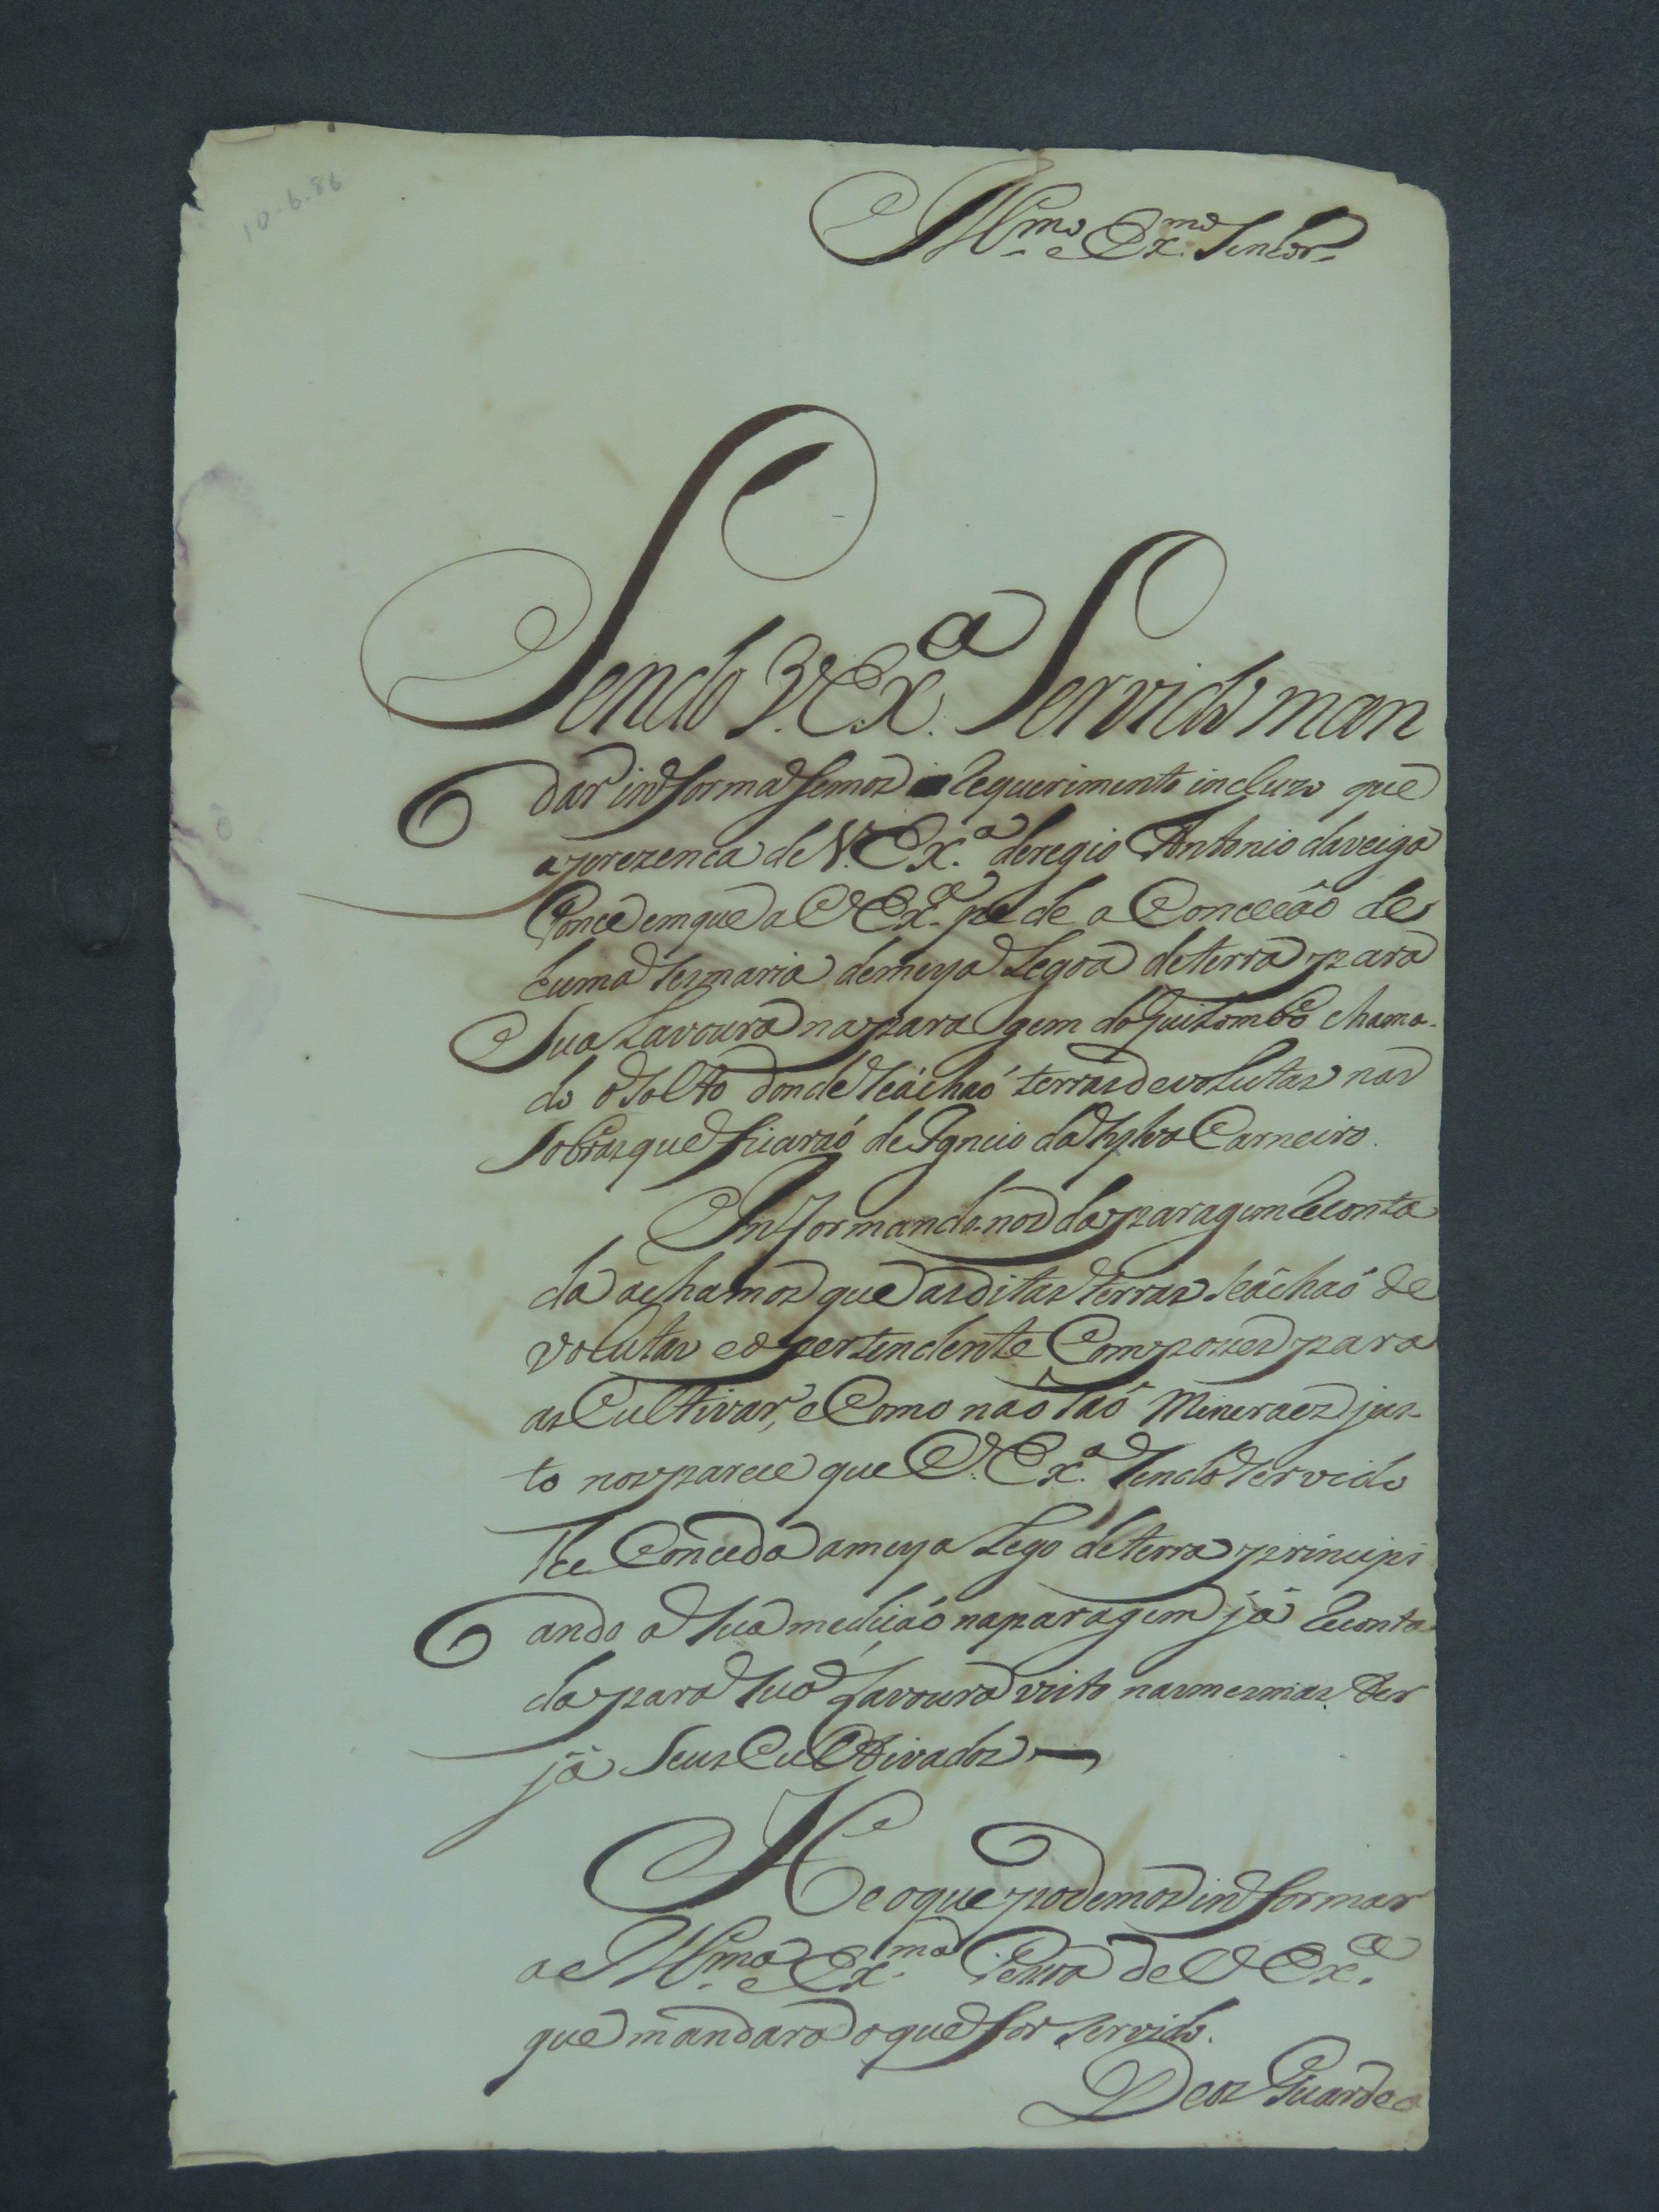 10-6-86
Illmo. e Exmo. Senhor
Sendo V. Exa. Servido man
dar informasemos o Requerimento incluzo que
a prezenca de V. Exa. deregio Antonio daveiga
Ponce emque a V. Exa. pede a Concecão de
huma Sesmaria demeya Legoa deterra para
Sua Lavoura naparagem do Quilombo chama-
do o Solto donde Seáchaó terras devolutas nas
Sobras que ficaraó de Igncio da Sylva Carneiro.
Informando-nos da paragem Reconta
da achamos que as ditas terras Seáchaó de
volutas e o pertendente Com posses para
as Cultivar, e Como naó Saó Mineraes jus-
to nos parece que V. Exa. Sendo Servido
lhe Conceda a meya Lego de terra principi
ando a Sua mediçaó naparagem já Reconta
da para Sua Lavoura visto nas mesmas ter
já Seus Cultivados
He o que podemos informar
a Illma. e Exma. Pesoa de V. Exa.
que mandara o que for Servido.
Deos Guarde a